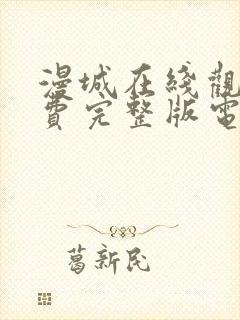 漫城在线觀
費完整版電
葛新民